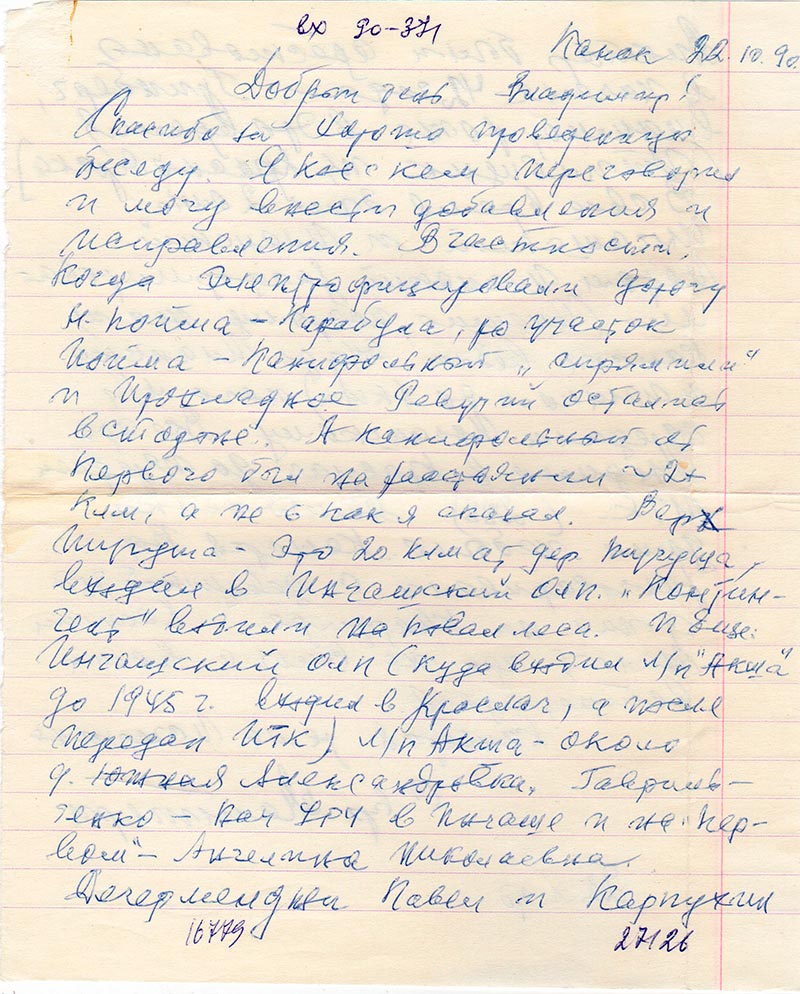 вх 90-371
Канск 22.10.90.
Добрый день Владимир!
Спасибо за хорошо проведенную
беседу. Я кое с кем переговорил
и могу внести добавления и
исправления. В частности,
когда электрофицировали дорогу
Н. Пойма – Карабула, то участок
Пойма – Канифольный „спрямили"
и Прохладное Ревучий остались
в стороне. А Канифольный от
Первого был на расстоянии ~ 2х
клм, а не 6 как я сказал. Верх
Пируша – это 20 клм от дер
входил в Ингашский Олп. „Контин-
гент" возили на повал леса. И еще:
Ингашский Олп (куда входил л/п "Акша"
до 1945 г. входил в Краслаг, а после
передан ИТК) л/п Акша – около
д. Южная Александровка. Гаврил-
тенко – Нач УРЧ в Ингаше и на „Пер-
вом" – Ангелина Николаевна.
Дечерменджи Павел и Карпухин
16779 27126